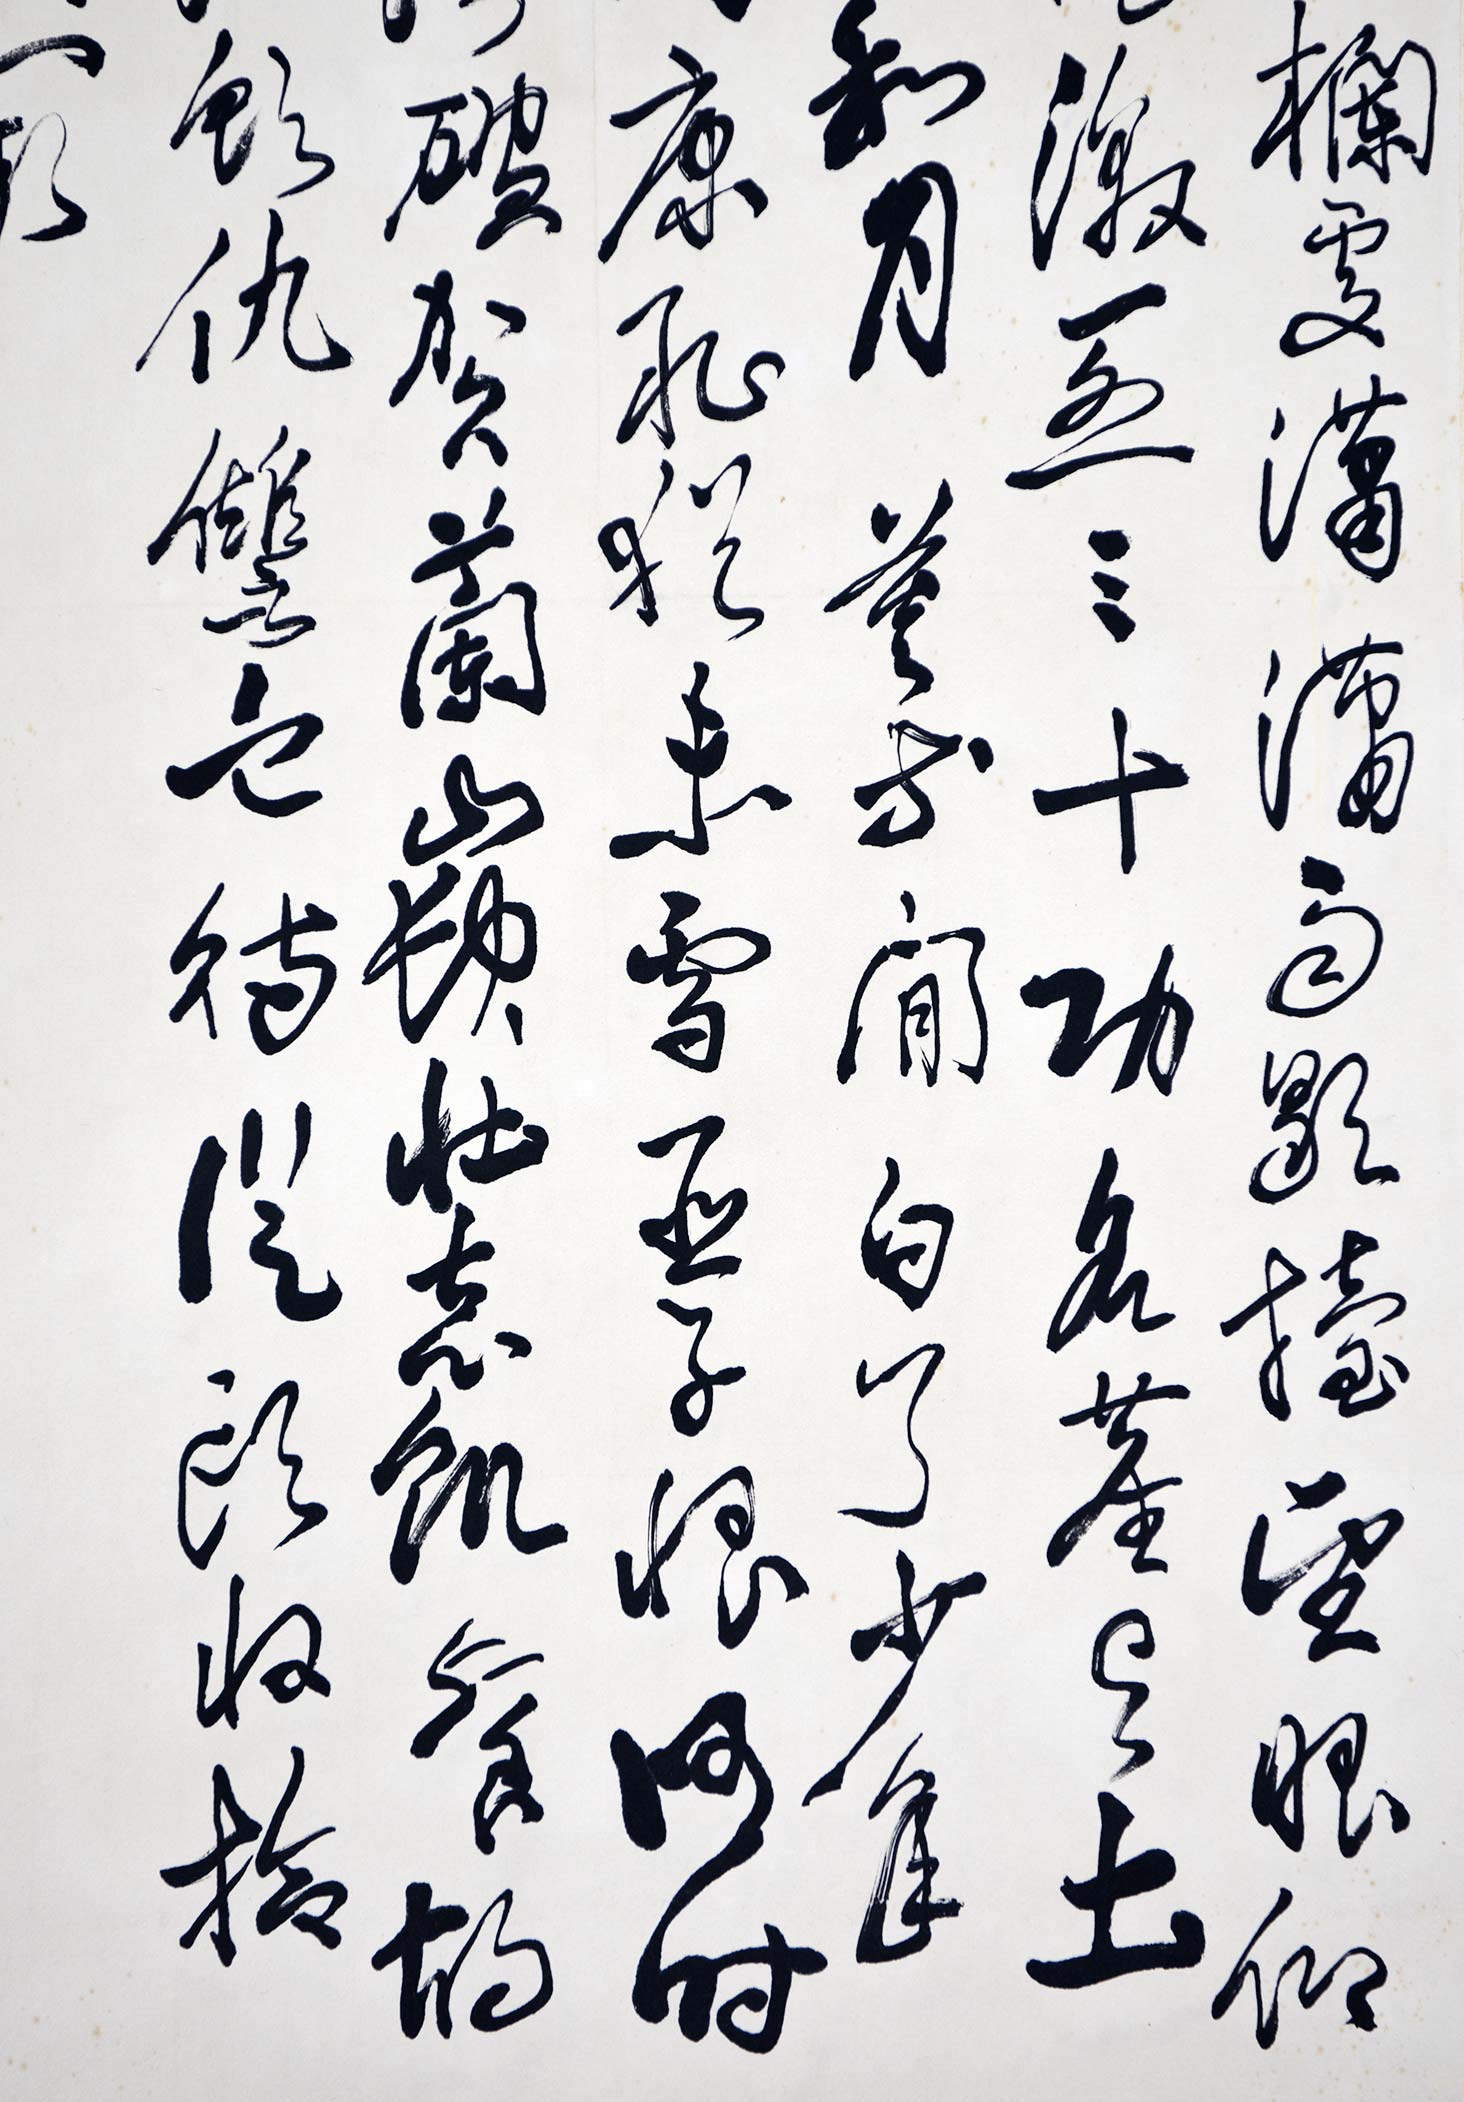 欄處瀟瀟雨歇擡望眼仰
激烈三十功名塵與土
和月莫等閒白了少年
康恥猶未雪臣子恨何時
破賀蘭山缺壯志飢餐胡
飲仇讎血待從頭收拾